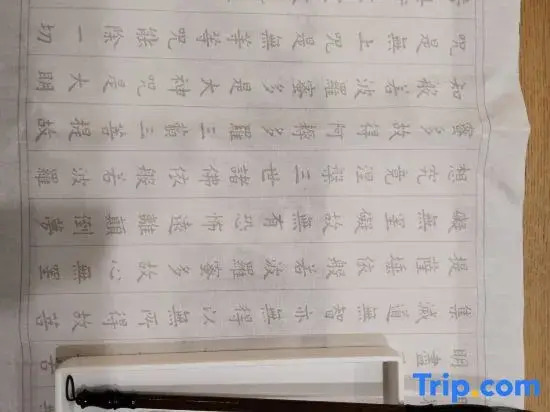 明盡
苦
集滅道無智亦無得以無所得故菩
提薩埵依般若波羅蜜多故心無罣
礙無罣礙故無有恐怖遠離顛倒夢
想究竟涅槃三世諸佛依般若波羅
蜜多故得阿耨多羅三藐三菩提故
知般若波羅蜜多是大神咒是大明
咒是無上咒是無等等咒能除一切
Trip.com